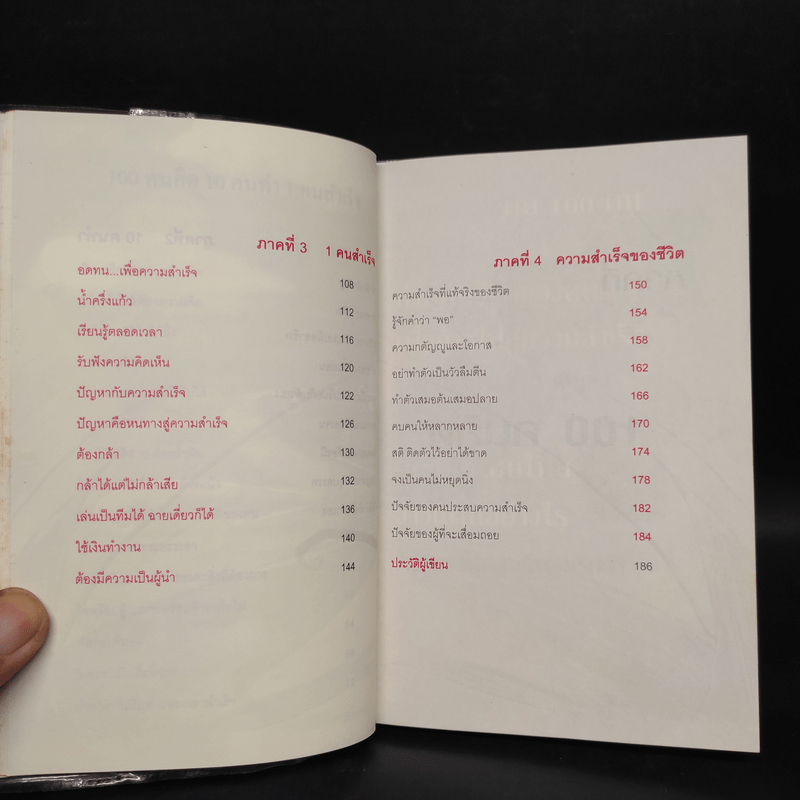 ภาคที่ 3 1 คนสำเร็จ
อดทน...เพื่อความสำเร็จ 108
น้ำครึ่งแก้ว 112
เรียนรู้ตลอดเวลา 116
รับฟังความคิดเห็น 120
ปัญหากับความสำเร็จ 122
ปัญหาคือหนทางสู่ความสำเร็จ 126
ต้องกล้า 130
กล้าได้แต่ไม่กล้าเสีย 132
เล่นเป็นทีมได้ ฉายเดี่ยวก็ได้ 136
ใช้เงินทำงาน 140
ต้องมีความเป็นผู้นำ 144
ภาคที่ 4 ความสำเร็จของชีวิต
ความสำเร็จที่แท้จริงของชีวิต 150
รู้จักคำว่า “พอ” 154
ความกตัญญูและโอกาส 158
อย่าทำตัวเป็นวัวลืมตีน 162
ทำตัวเสมอต้นเสมอปลาย 166
คบคนให้หลากหลาย 170
สติ ติดตัวไว้อย่าได้ขาด 174
จงเป็นคนไม่หยุดนิ่ง 178
ปัจจัยของคนประสบความสำเร็จ 182
ปัจจัยของผู้ที่จะเสื่อมถอย 184
ประวัติผู้เขียน 186